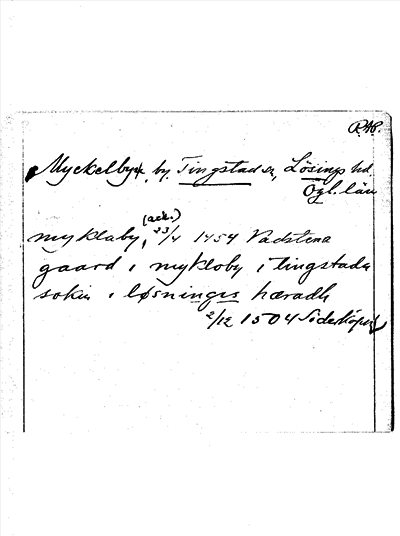 RAP.
Myckelby, by, Tingstad sn, Lösings hd,
Ögl. län
(ack.)
myklaby, 23/4 1454 Vadstena
gaard i mykloby i tingstada
sokn i løsningis hæradh
2/12 1504 Söderköping